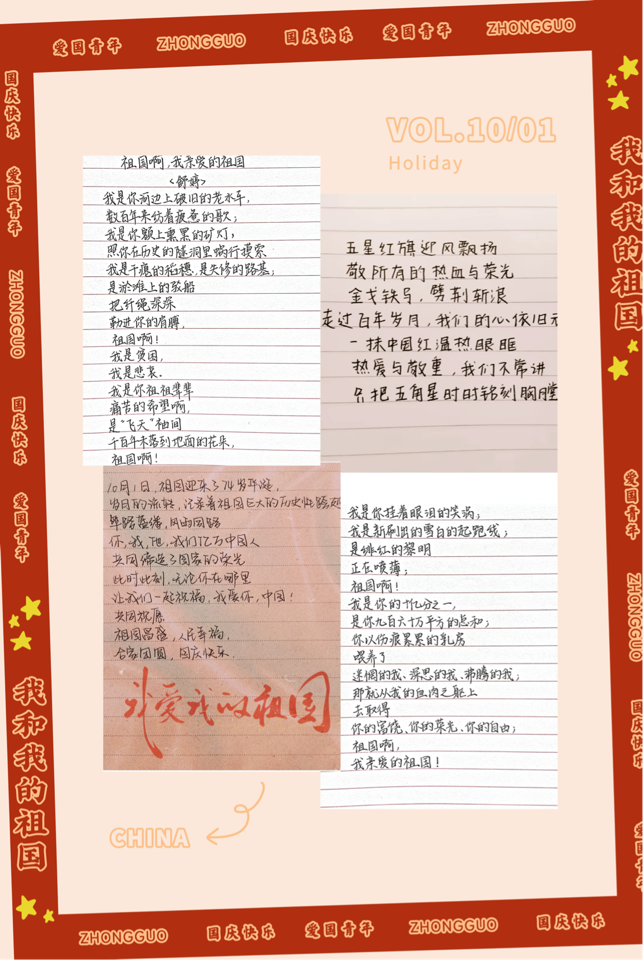 爱国青年 ZHONGGUO 国庆快乐 爱国青年 ZHONGGUO
国庆快乐
爱国青年
ZHONGGUO
国庆快乐
爱国青年
我和我的祖国
我和我的祖国
爱国青年
ZHONGGUO
VOL.10/01
Holiday
祖国啊,我亲爱的祖国
<舒婷>
我是你河边上破旧的老水车,
数百年来纺着疲惫的歌;
我是你额上熏黑的矿灯,
照你在历史的隧洞里蜗行摸索
我是干瘪的稻穗,是失修的路基;
是淤滩上的驳船
把纤绳深深
勒进你的肩膊,
祖国啊!
我是贫困,
我是悲哀.
我是你祖祖辈辈
痛苦的希望啊,
是“飞天”袖间
千百年未落到地面的花朵,
祖国啊!
五星红旗迎风飘扬
敬所有的热血与荣光
金戈铁马,劈荆斩浪
走过百年岁月,我们的心依旧
一抹中国红温热眼眶
热爱与敬重,我们不常讲
只把五角星时时铭刻胸膛
10月1日,祖国迎来了74岁华诞.
岁月的流转,
筚路蓝缕,风雨同路
你,我,他,我们亿万中国人
共同缔造了国家的荣光
此时此刻,无论你在哪里
让我们一起祝福,我爱你,中国!
共同祝愿
祖国昌盛,人民幸福,
合家团圆,国庆快乐.
我爱我的祖国
我是你挂着眼泪的笑涡;
我是新刷出的雪白的起跑线;
是绯红的黎明
正在喷薄;
祖国啊!
我是你的十亿分之一,
是你九百六十万平方的总和;
你以伤痕累累的乳房
喂养了
迷惘的我、深思的我、沸腾的我;
那就从我的血肉之躯上
去取得
你的富饶、你的荣光、你的自由;
祖国啊,
我亲爱的祖国!
CHINA
ZHONGGUO 国庆快乐 爱国青年 ZHONGGUO 国庆快乐